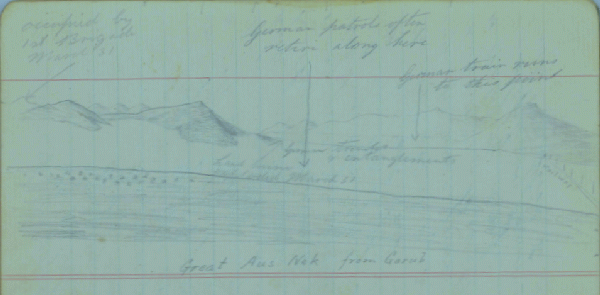 occupied by
1st Brigade
March 21
German patrols often
retire along here
German train runs
to this point
German trenches
& entanglements
Line been
March 21
Great Aus Nek from Garub